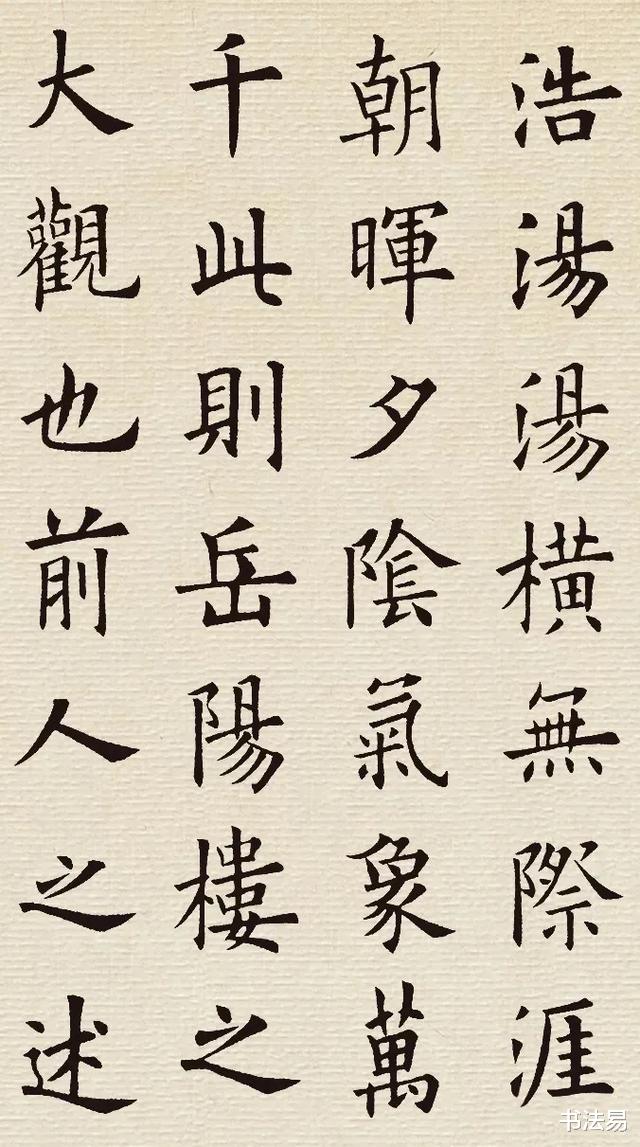 浩湯湯橫無際涯
朝暉夕陰氣象萬
千此則岳陽樓之
大觀也前人之述
书法易